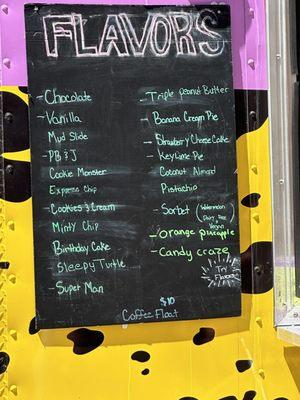 FLAVORS
- Chocolate
- Vanilla
Mud Slide
PB & J
Cookie Monster
Expresso Chip
- Cookies & Cream
Minty Chip
Birthday Cake
Sleepy Turtle
- Super Man
- Triple Peanut Butter
- Banana Cream Pie
- Strawberry Cheese Cake
- Key Lime Pie
Coconut Almond
Pistachio
- Sorbet (Watermelon
Dairy Free
Vegan)
- Orange pineapple
- Candy craze
Try
Flavors
$10
Coffee Float